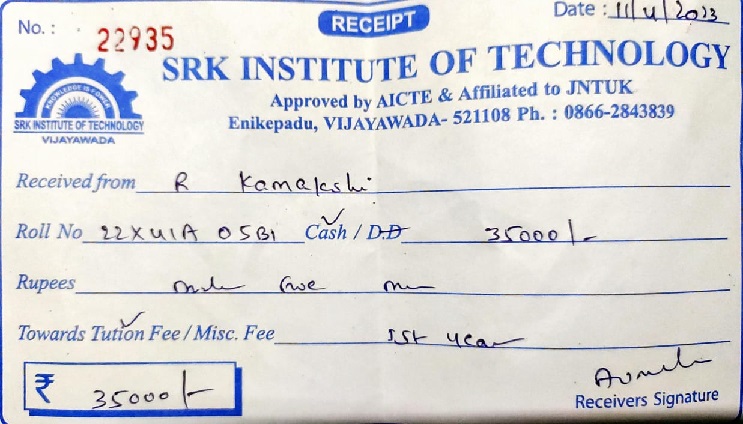 No. : 22935 RECEIPT Date : 11/4/2023
KNOWLEDGE IS POWER
SRK INSTITUTE OF TECHNOLOGY
VIJAYAWADA
SRK INSTITUTE OF TECHNOLOGY
Approved by AICTE & Affiliated to JNTUK
Enikepadu, VIJAYAWADA- 521108 Ph. : 0866-2843839
Received from R Kamakshi
Roll No 22X41A 05B1 Cash / DD 35000/-
Rupees five
Towards Tution Fee / Misc. Fee Ist year
₹ 35000/-
Receivers Signature